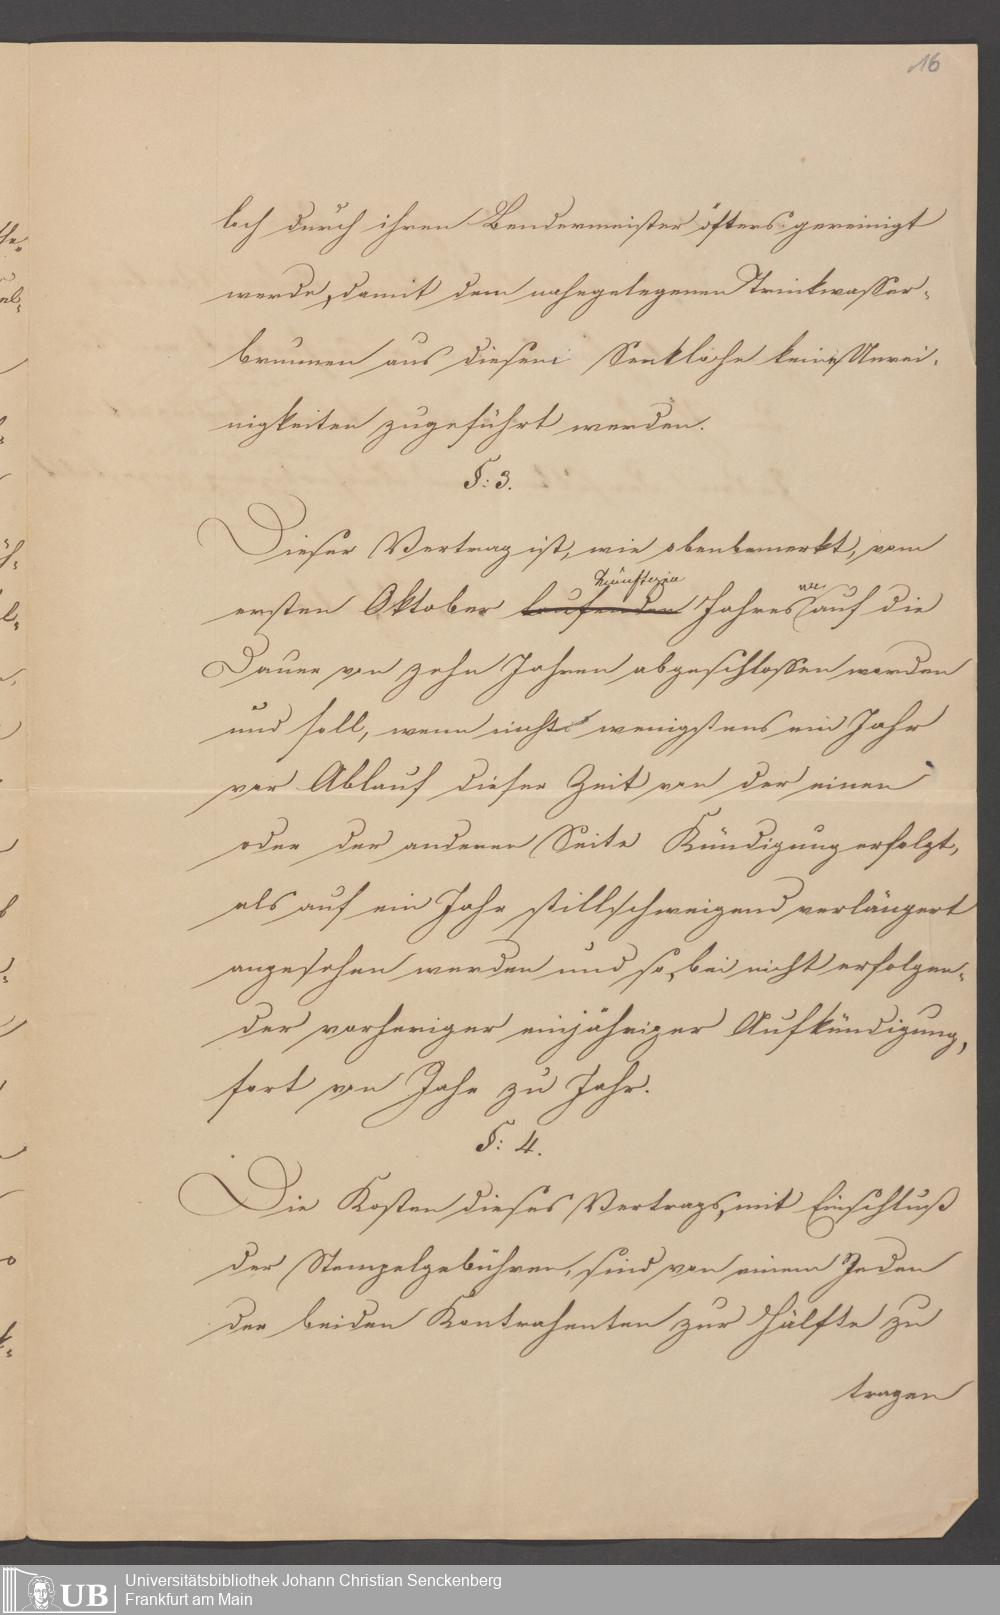 16
loch durch ihren Bendermeister öfters gereinigt
werde, damit dem nahegelegenen Trinkwasser-
brunnen aus diesem Senkloche keine Unrei-
nigkeiten zugeführt werden.
§: 3.
Dieser Vertrag ist, wie obenbemerkt, vom
künftigen
ersten Oktober laufenden Jahres an auf die
Dauer von zehn Jahren abgeschlossen worden
und soll, wenn nicht wenigstens ein Jahr
vor Ablauf dieser Zeit von der einen
oder der anderen Seite Kündigung erfolgt,
als auf ein Jahr stillschweigend verlängert
angesehen werden und so, bei nicht erfolgen-
der vorheriger einjähriger Aufkündigung,
fort von Jahr zu Jahr.
§: 4.
Die Kosten dieses Vertrags, mit Einschluß
der Stempelgebühren, sind von einem Jeden
der beiden Kontrahenten zur Hälfte zu
tragen
UB
Universitätsbibliothek Johann Christian Senckenberg
Frankfurt am Main